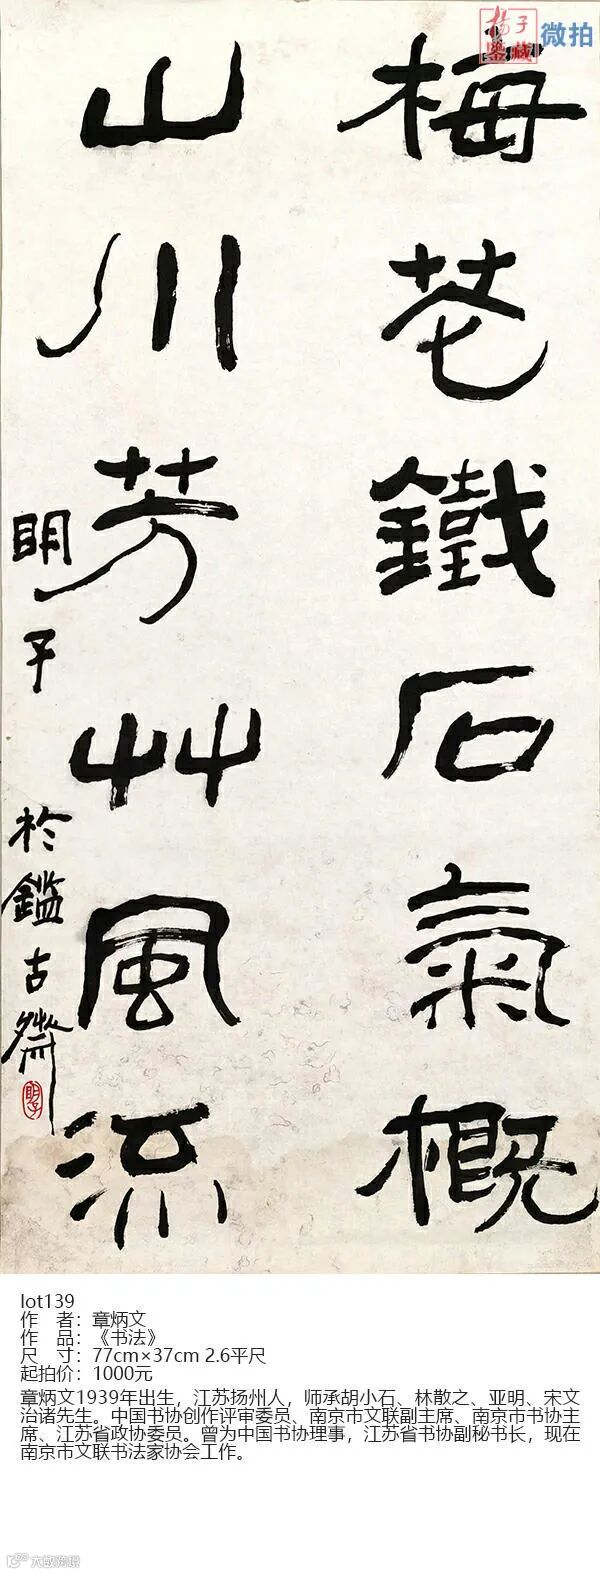 杨子
鉴藏
微拍
梅花鐵石氣概
山川芳艸風流
明子於鑑古齋
明子
lot139
作 者：章炳文
作 品：《书法》
尺 寸：77cm×37cm 2.6平尺
起拍价：1000元
章炳文1939年出生，江苏扬州人，师承胡小石、林散之、亚明、宋文
治诸先生。中国书协创作评审委员、南京市文联副主席、南京市书协主
席、江苏省政协委员。曾为中国书协理事，江苏省书协副秘书长，现在
南京市文联书法家协会工作。